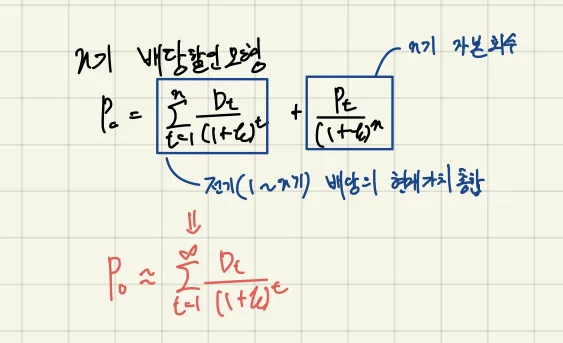 n기 배당할인모형
n기 자본 회수
P₀ = \sum_{t=1}^{n} \frac{D_t}{(1+k)^t} + \frac{P_t}{(1+k)^n}
전기(1~n기) 배당의 현재가치 총합
⇓
P₀ ≈ \sum_{t=1}^{∞} \frac{D_t}{(1+k)^t}